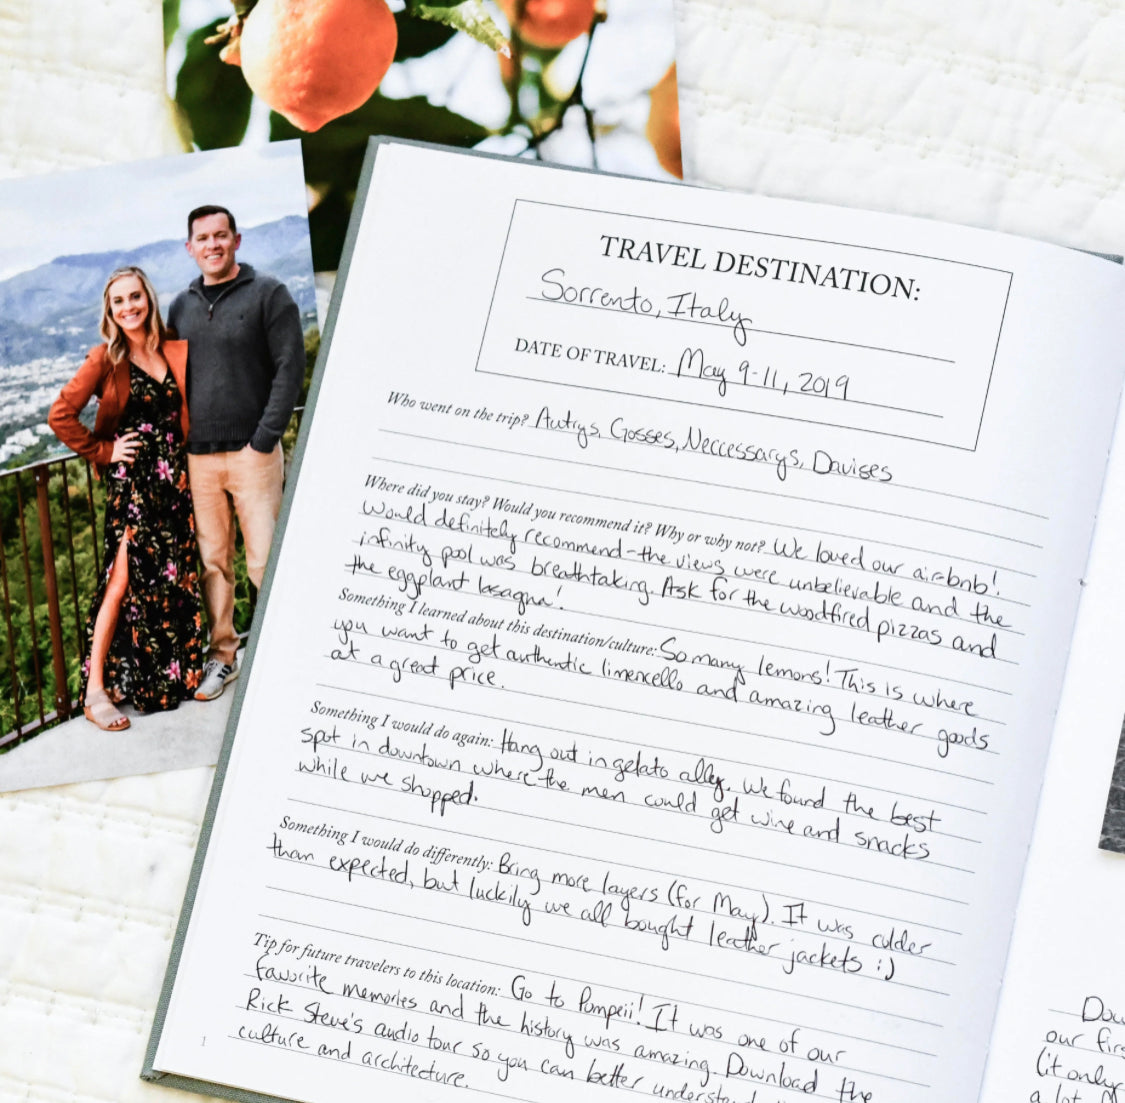 TRAVEL DESTINATION:
Sorrento, Italy
DATE OF TRAVEL: May 9-11, 2019
Who went on the trip? Autrys, Gosses, Neccessarys, Davises
Where did you stay? Would you recommend it? Why or why not? We loved our airbnb!
Would definitely recommend - the views were unbelievable and the
infinity pool was breathtaking. Ask for the woodfired pizzas and
the eggplant lasagna!
Something I learned about this destination/culture: So many lemons! This is where
you want to get authentic limencello and amazing leather goods
at a great price.
Something I would do again: Hang out in gelato alley. We found the best
spot in downtown where the men could get wine and snacks
while we shopped.
Something I would do differently: Bring more layers (for May). It was colder
than expected, but luckily we all bought leather jackets :)
Tip for future travelers to this location: Go to Pompeii! It was one of our
favorite memories and the history was amazing. Download the
Rick Steve's audio tour so you can better understand
culture and architecture.
1
our
(it only
a lot.